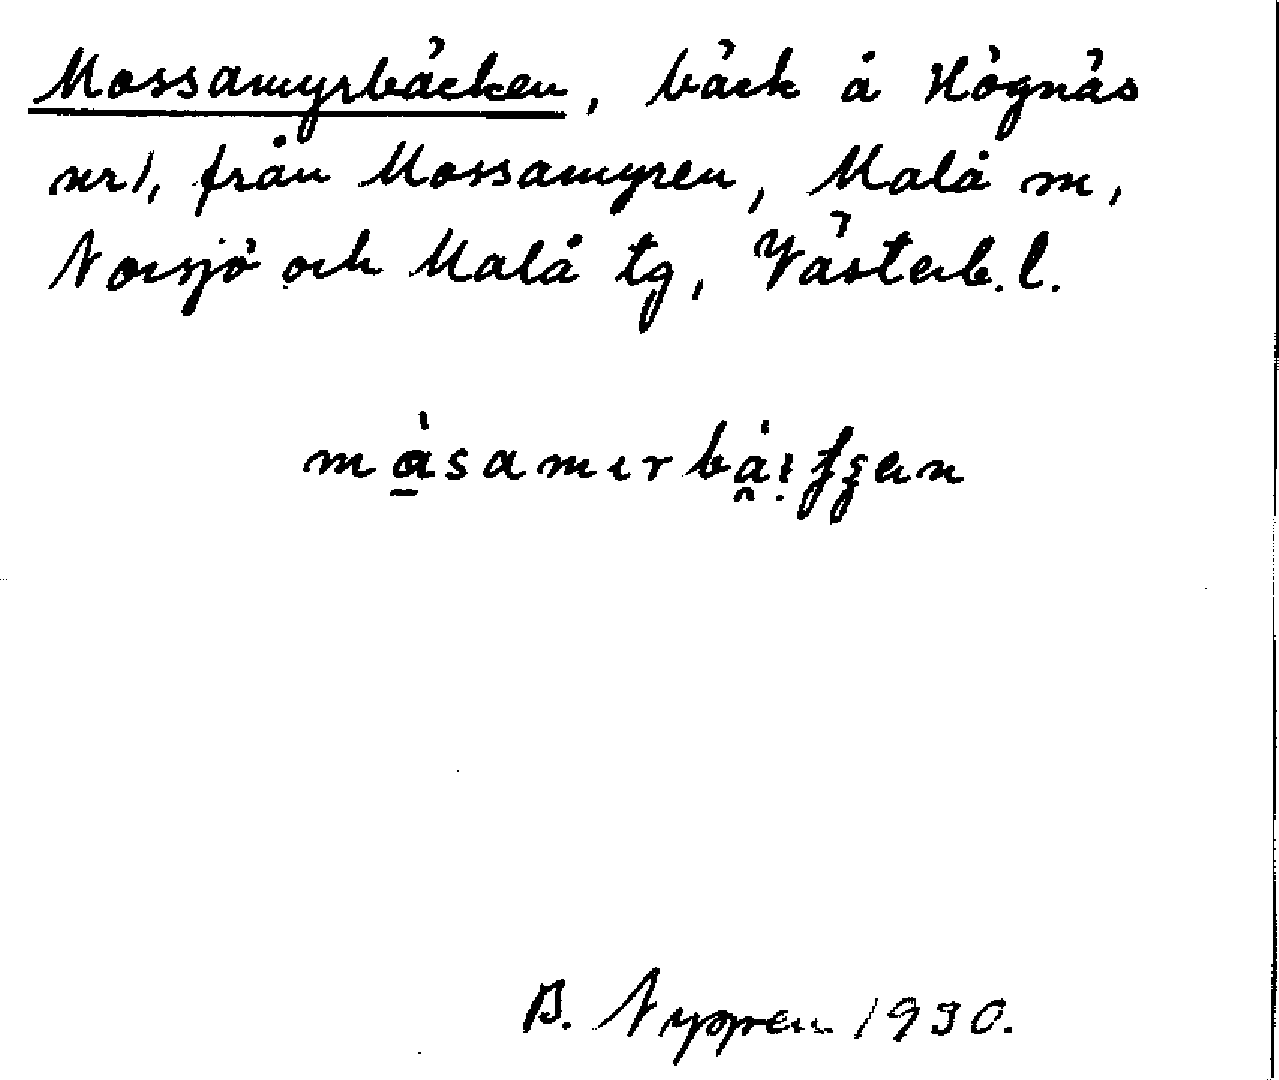 Mossamyrbäcken, bäck å Högnäs
nr1, från Mossamyren, Malå m,
Norsjö och Malå tg, Västerb. l.
B. Nyppen 1930.